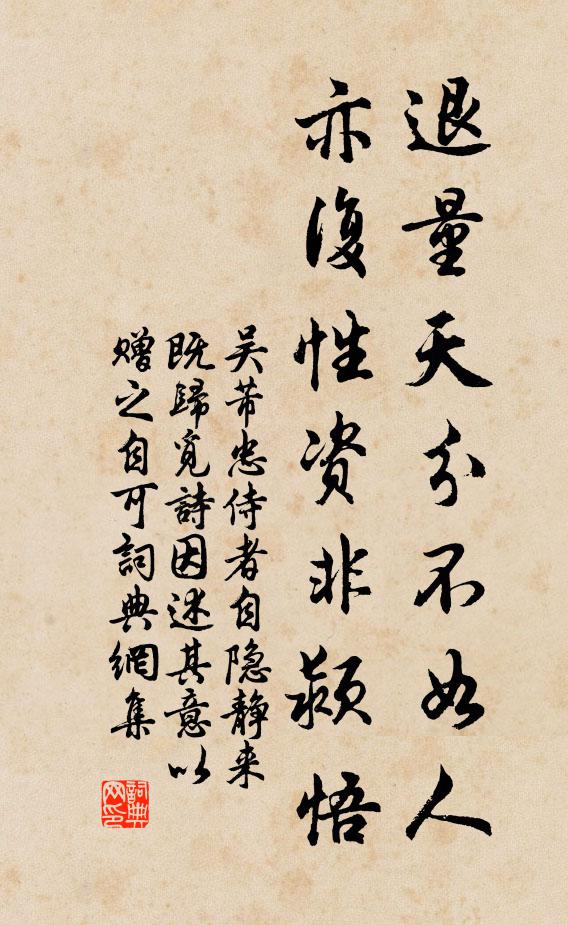 退量天分不如人
亦復性资非颖悟
吴芾忠侍者自隐静来
既歸覓詩因述其意以
赠之自可詞典網集
詞典
网印